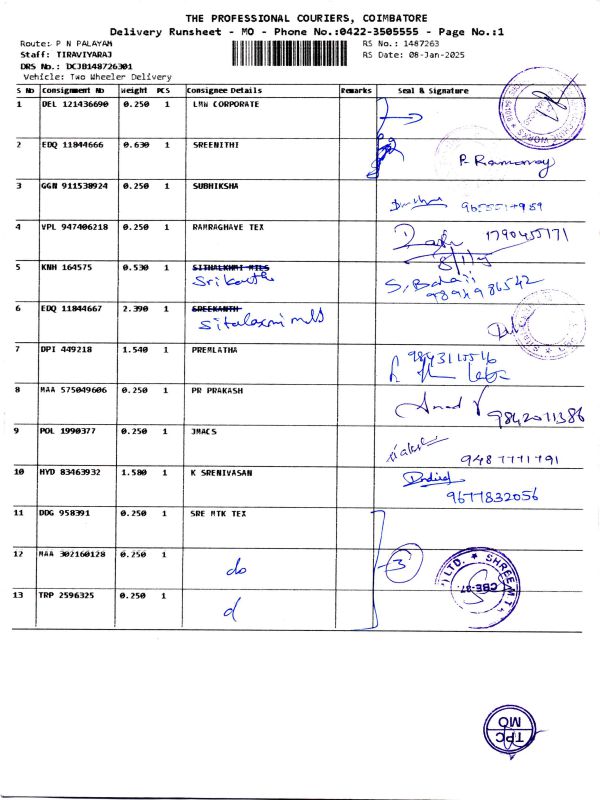 THE PROFESSIONAL COURIERS, COIMBATORE
Delivery Runsheet - MO - Phone No.:0422-3505555 - Page No.:1
Route: P N PALAYAM
Staff: TIRAVIYARAJ
DRS No.: DCJB148726301
Vehicle: Two Wheeler Delivery
RS No.: 1487263
RS Date: 08-Jan-2025
S No Consignment No Weight PCS Consignee Details Remarks Seal & Signature
1 DEL 121436690 0.250 1 LMW CORPORATE
2 EDQ 11844666 0.630 1 SREENITHI
P. Ramasamy
3 GGN 911538924 0.250 1 SUBHIKSHA
4 VPL 947406218 0.250 1 RAMRAGHAVE TEX
1790455171
5 KNH 164575 0.530 1 SITHALKHMI MILS
Srikanth
S. Balaji
9894986542
6 EDQ 11844667 2.390 1 SREEKANTH
Sitalaxmi mills
7 DPI 449218 1.540 1 PREMLATHA
8 MAA 575049606 0.250 1 PR PRAKASH
Anand V
9842011386
9 POL 1990377 0.250 1 JMACS
9487771791
10 HYD 83463932 1.580 1 K SRENIVASAN
9677832056
11 DDG 958391 0.250 1 SRE MTK TEX
12 MAA 302160128 0.250 1 do
3
13 TRP 2596325 0.250 1 d
LTD. * SHREE M.T.
CBE-37.
TPC
MO